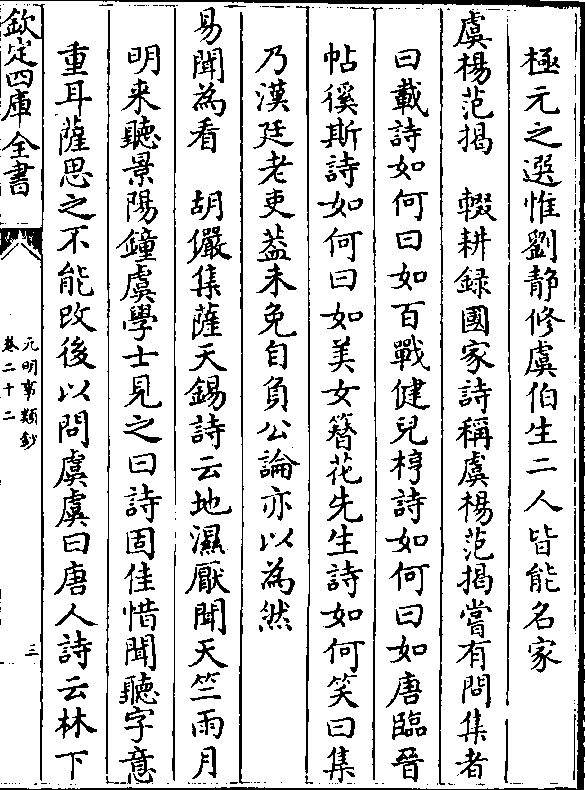 極元之選惟劉静修虞伯生二人皆能名家
虞楊范揭　輟耕録國家詩稱虞楊范揭嘗有問集者
曰載詩如何曰如百戰健兒梈詩如何曰如唐臨晉
帖徯斯詩如何曰如美女簪花先生詩如何笑曰集
乃漢廷老吏葢未免自負公論亦以為然
易聞為看　胡儼集薩天錫詩云地濕厭聞天竺雨月
明来聽景陽鐘虞學士見之曰詩固佳惜聞聽字意
重耳薩思之不能改後以問虞虞曰唐人詩云林下
欽定四庫全書
元明事類鈔
卷二十二
三